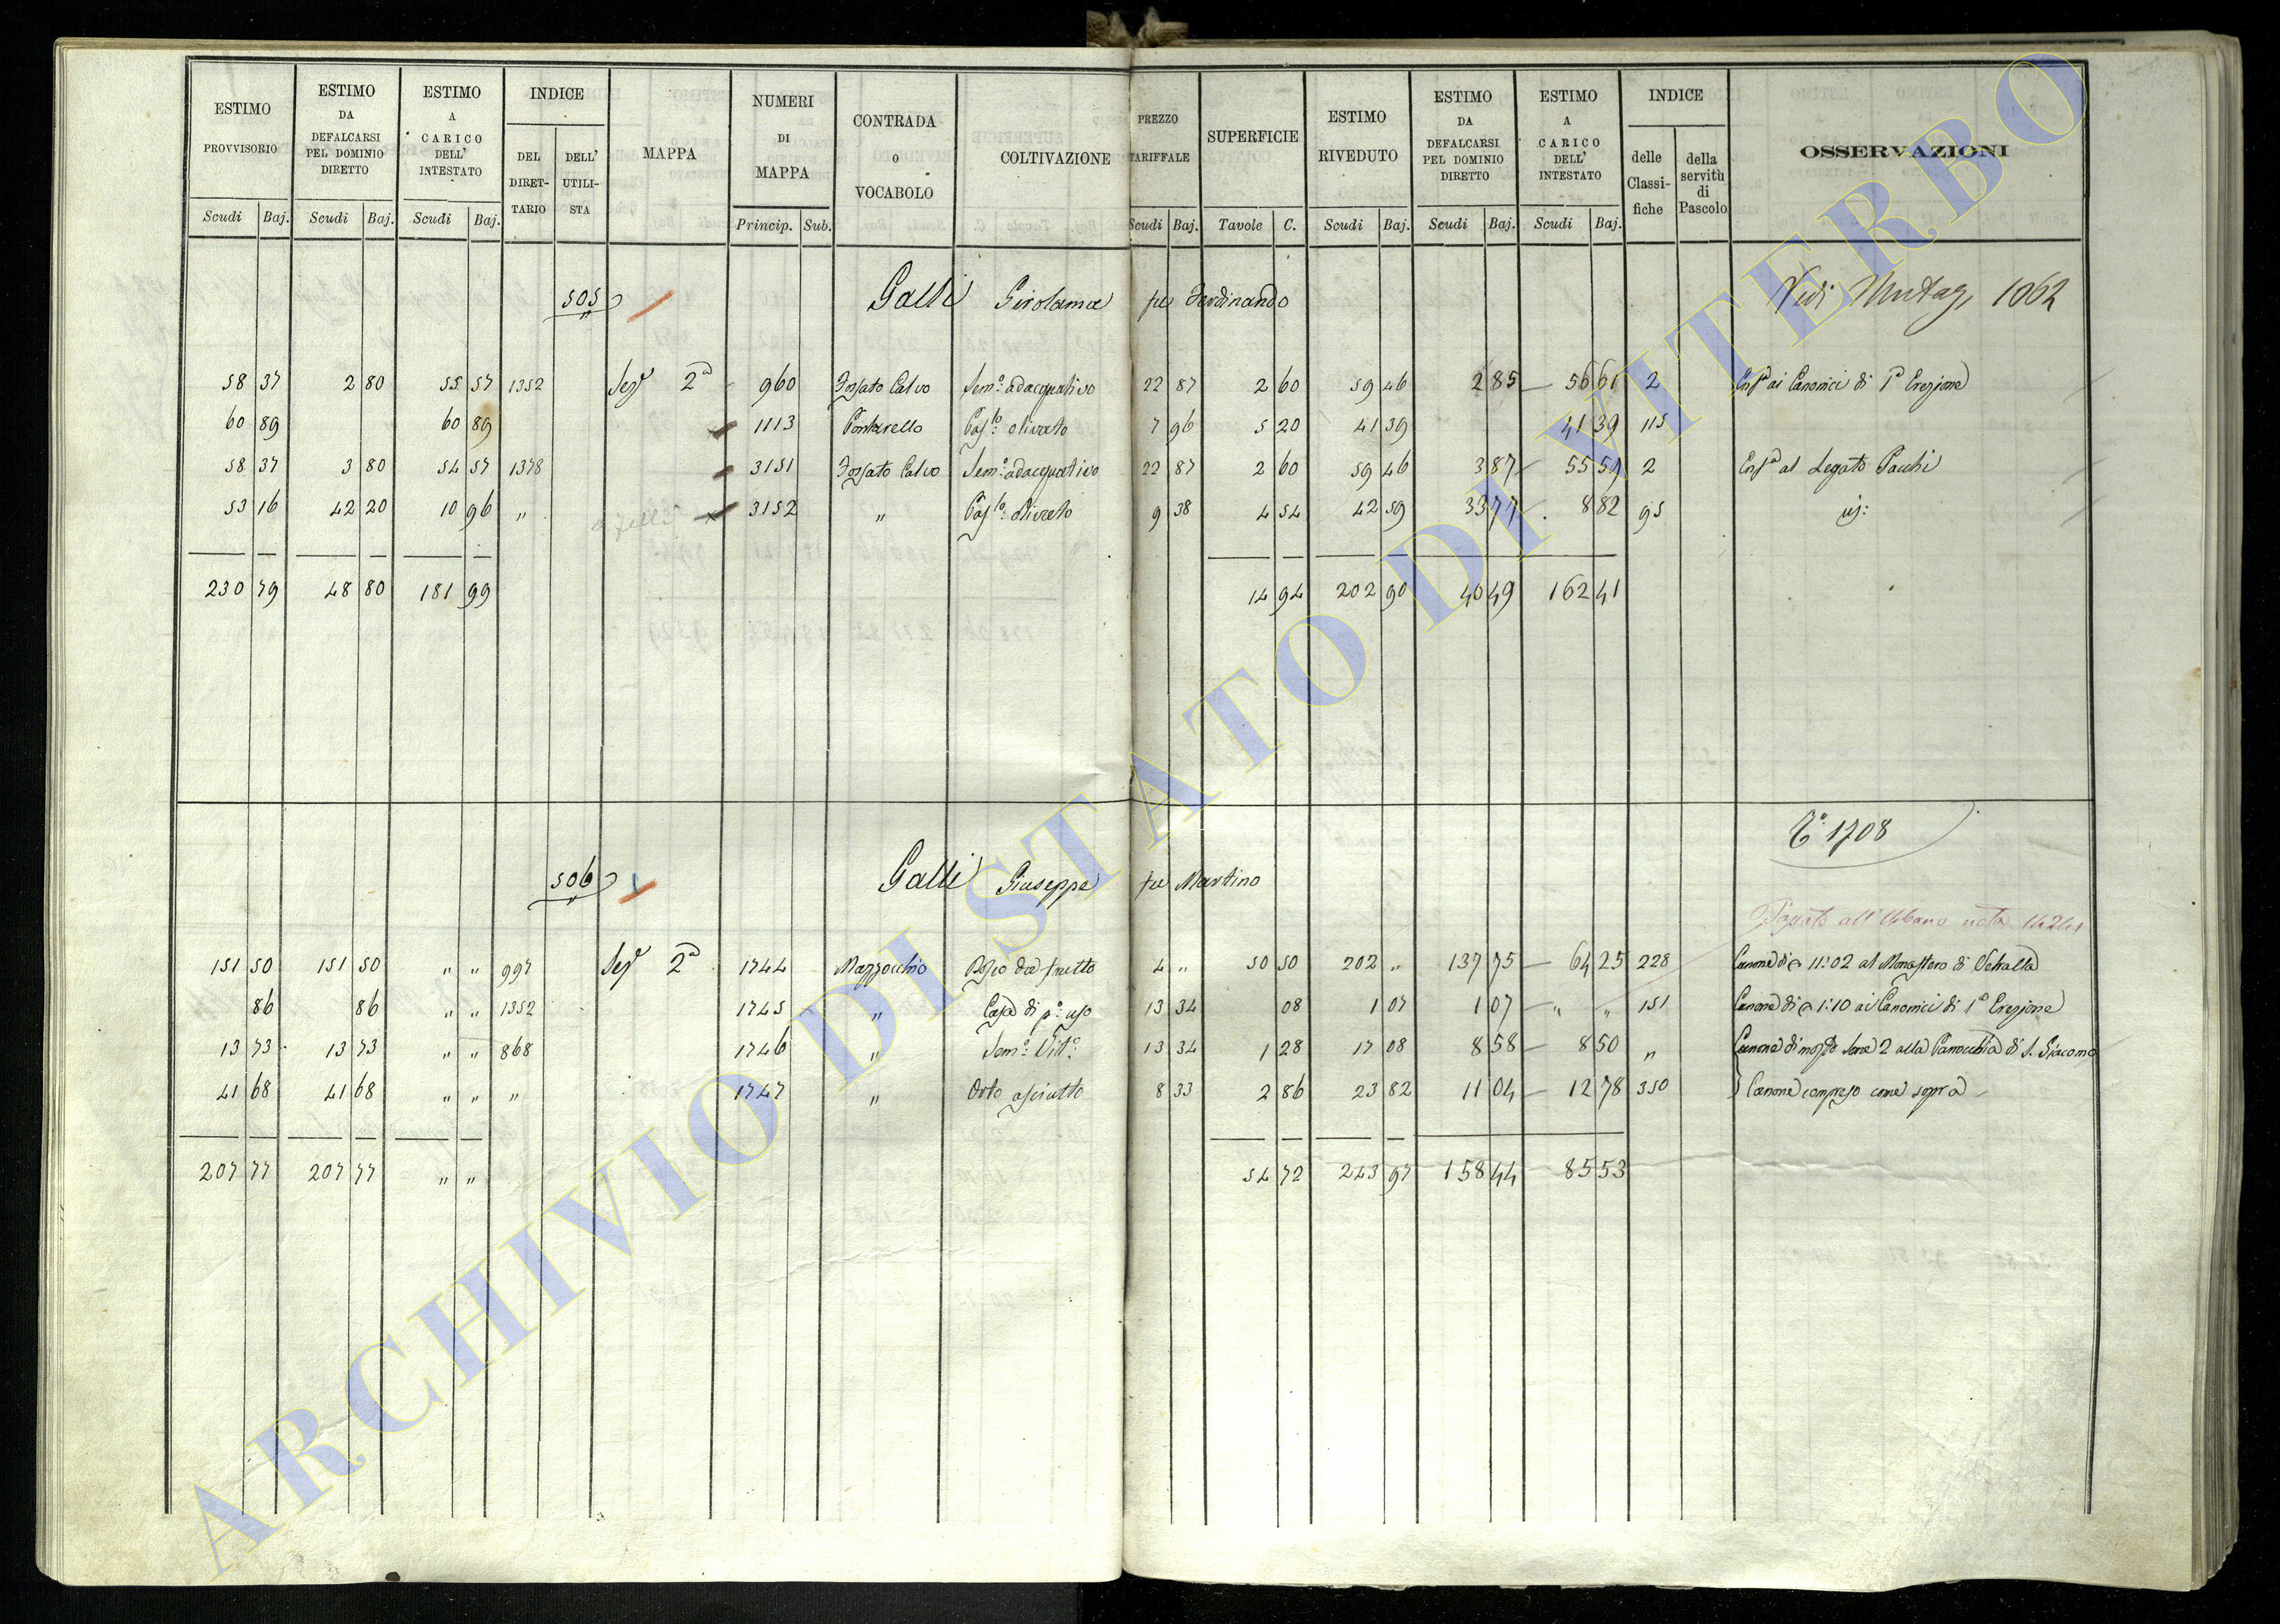 ESTIMO PROVVISORIO | ESTIMO DA DEFALCARSI PEL DOMINIO DIRETTO | ESTIMO A CARICO DELL' INTESTATO | INDICE | MAPPA | NUMERI DI MAPPA | CONTRADA O VOCABOLO | COLTIVAZIONE | PREZZO TARIFFALE | SUPERFICIE | ESTIMO RIVEDUTO | ESTIMO DA DEFALCARSI PEL DOMINIO DIRETTO | ESTIMO A CARICO DELL' INTESTATO | INDICE | OSSERVAZIONI
DEL DIRETTARIO | DELL' UTILISTA | delle Classifiche | della servitù di Pascolo
Scudi | Baj. | Scudi | Baj. | Scudi | Baj. | Princip. | Sub. | Scudi | Baj. | Tavole | C. | Scudi | Baj. | Scudi | Baj. | Scudi | Baj.
505 Galli Girolama fu Ferdinando Vedi 1062
58 37 | 2 80 | 55 57 | 1352 | Seze 2a | 960 | Fossato Calvo | Semo adacquativo | 22 87 | 2 60 | 59 46 | 2 85 | 56 61 | 2 | ai Canonici di 1a Erezione
60 89 | 60 89 | 1113 | Pontarello | olivato | 7 96 | 5 20 | 41 39 | 41 39 | 115
58 37 | 3 80 | 54 57 | 1378 | 3151 | Fossato Calvo | Semo adacquativo | 22 87 | 2 60 | 59 46 | 3 87 | 55 59 | 2 | al Legato Pacchi
53 16 | 42 20 | 10 96 | " | 3152 | " | olivato | 9 38 | 4 54 | 42 59 | 33 77 | 8 82 | 95
230 79 | 48 80 | 181 99 | 14 94 | 202 90 | 40 49 | 162 41
To 1708
506 Galli Giuseppe fu Martino
Passato all'Urbano nota
151 50 | 151 50 | " " | 997 | Seze 2a | 1744 | Mazzocchio | da frutto | 4 " | 50 50 | 202 " | 137 75 | 64 25 | 228 | Canone di 11:02 al Monastero di Vetralla
86 | 86 | " " | 1352 | 1745 | " | Casa di po uso | 13 34 | 08 | 1 07 | 1 07 | " " | 151 | Canone di 1:10 ai Canonici di 1a Erezione
13 73 | 13 73 | " " | 868 | 1746 | " | Semo Vito | 13 34 | 1 28 | 17 08 | 8 58 | 8 50 | " | Canone di mosto some 2 alla Parrocchia di S. Giacomo
41 68 | 41 68 | " " | " | 1747 | " | Orto asciutto | 8 33 | 2 86 | 23 82 | 11 04 | 12 78 | 350 | Canone compreso come sopra
207 77 | 207 77 | " " | 54 72 | 243 97 | 158 44 | 85 53
ARCHIVIO DI STATO DI VITERBO